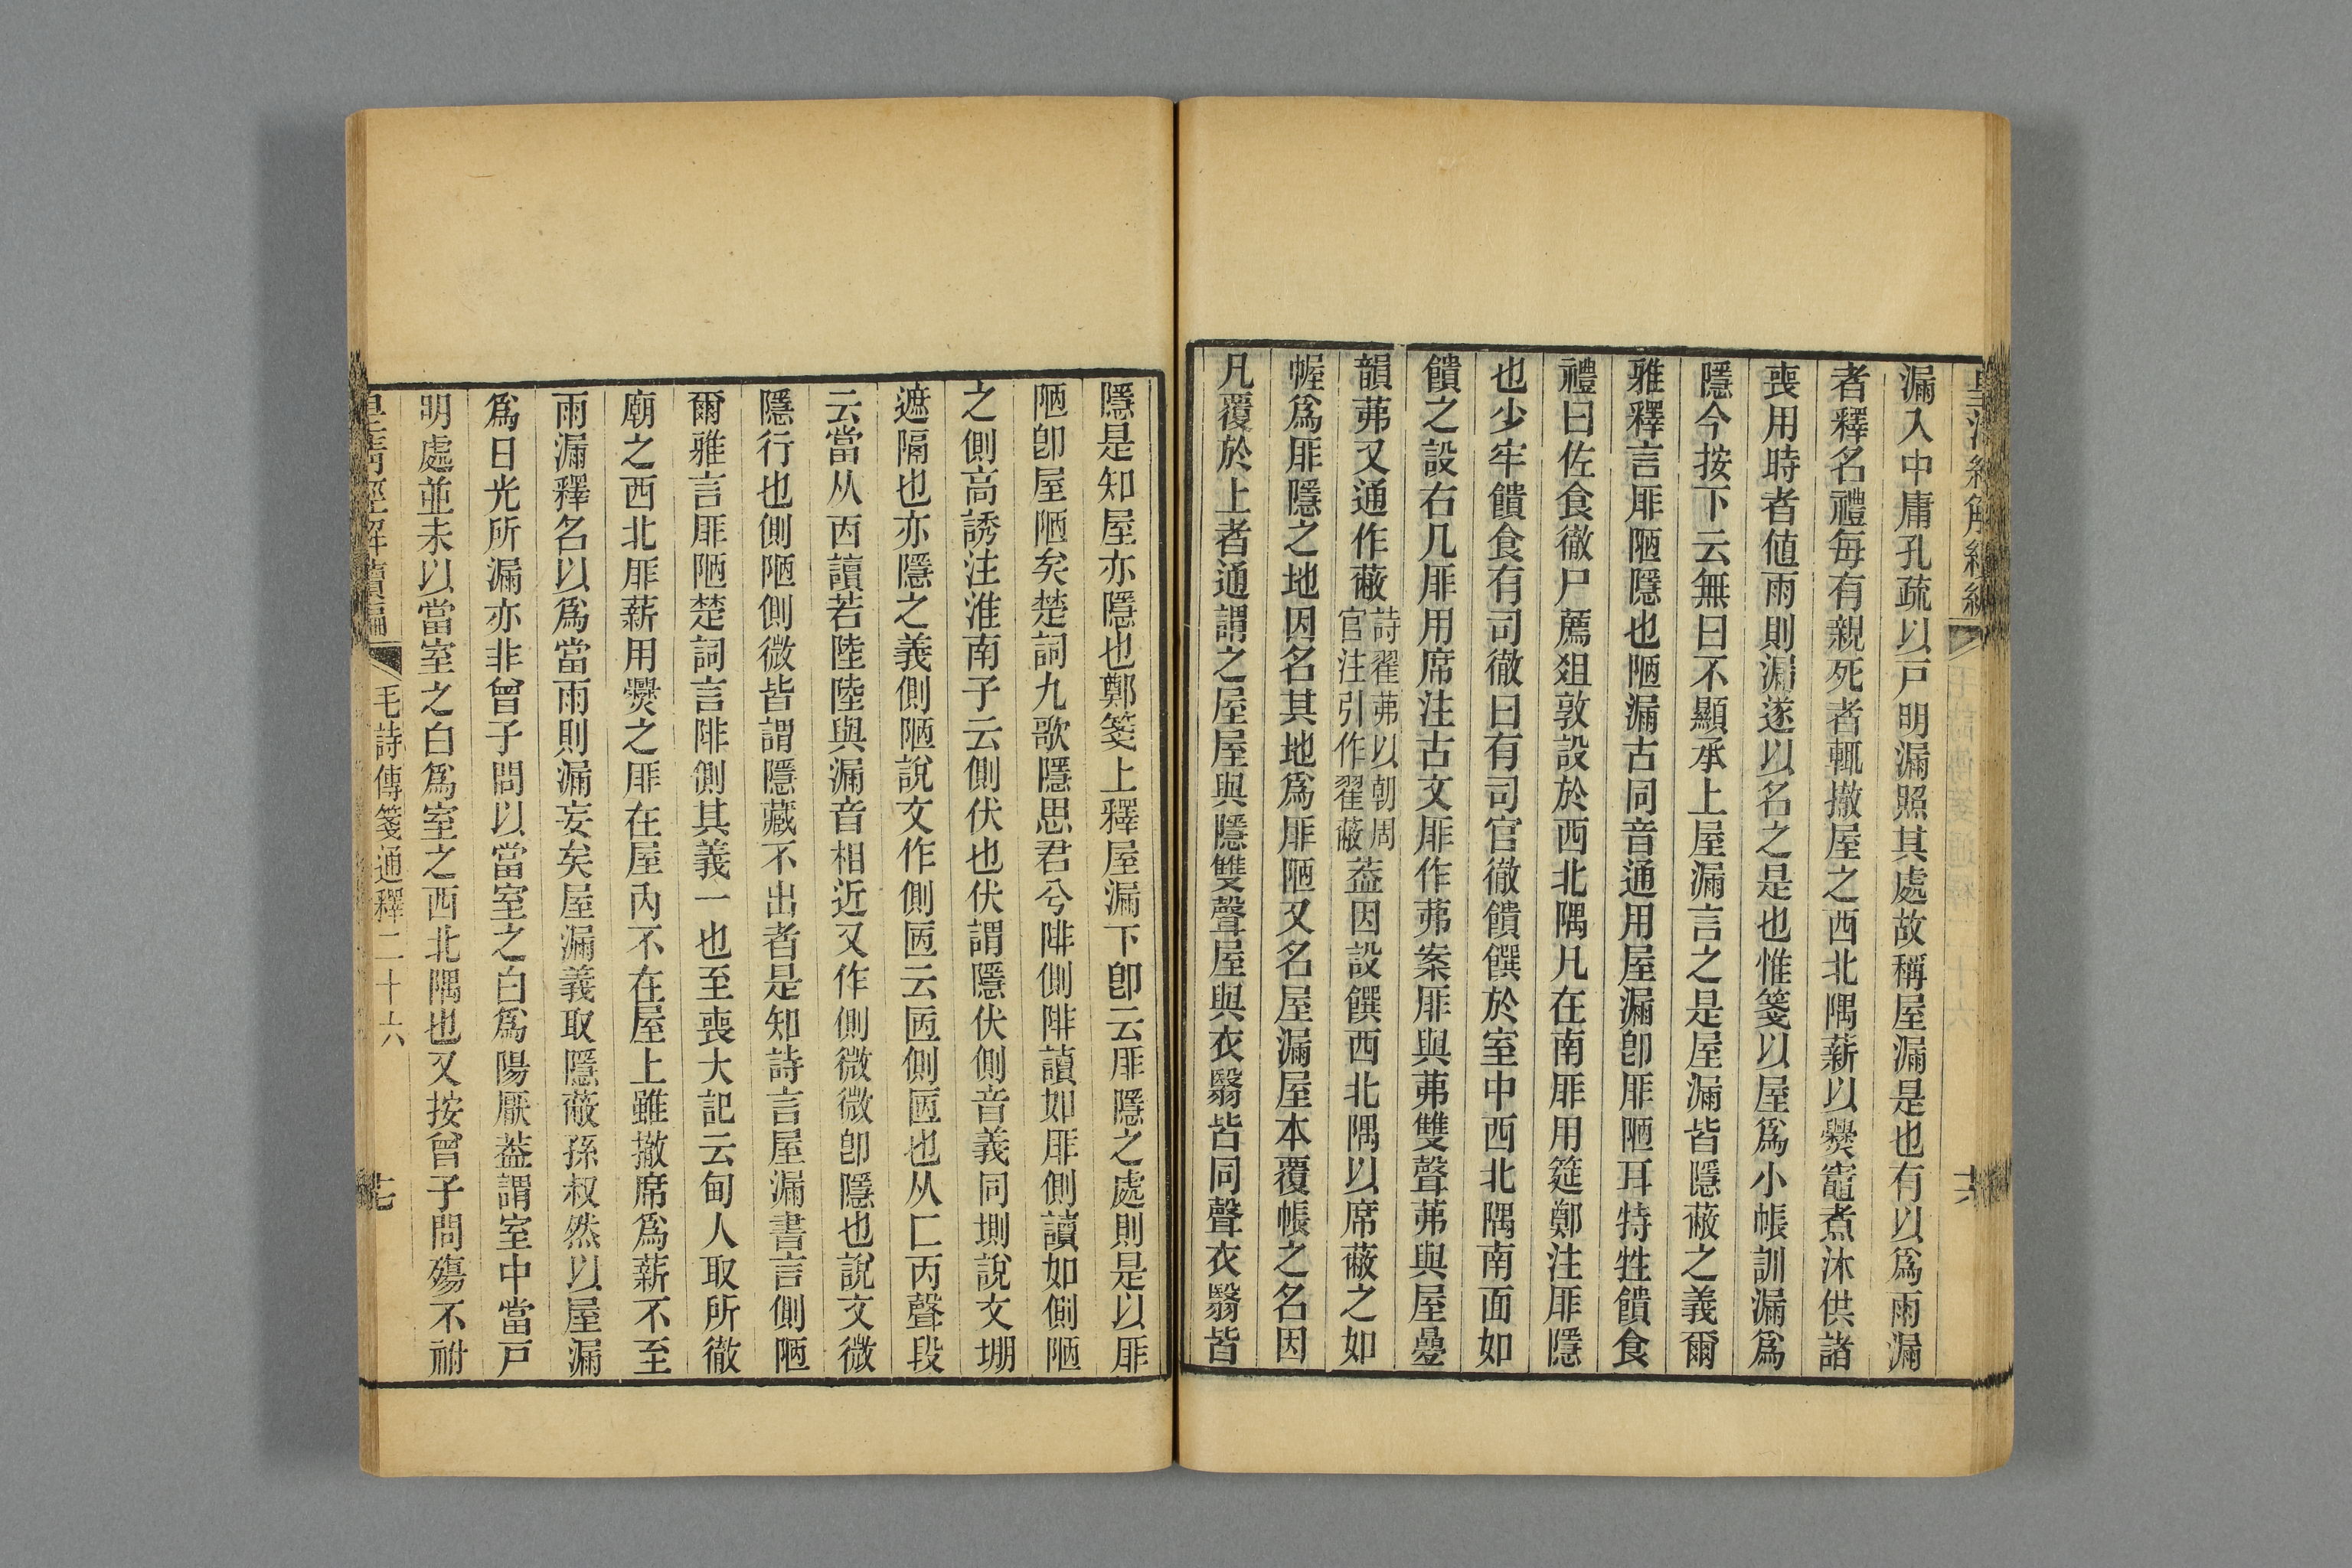 漏入中庸孔疏以戸明漏照其處故稱屋漏是也有以爲雨漏
者釋名禮每有親死者輒撤屋之西北隅薪以爨竈煮沐供諸
喪用時者値雨則漏遂以名之是也惟箋以屋爲小帳訓漏爲
隱今按下云無曰不顯承上屋漏言之是屋漏皆隱蔽之義爾
雅釋言厞陋隱也陋漏古同音通用屋漏卽厞陋耳特牲饋食
禮曰佐食徹尸薦爼敦設於西北隅凡在南厞用筵鄭注厞隱
也少牢饋食有司徹曰有司官徹饋饌於室中西北隅南面如
饋之設右几厞用席注古文厞作茀案厞與茀雙聲茀與屋曡
韻茀又通作蔽
詩翟茀以朝周
官注引作翟蔽
葢因設饌西北隅以席蔽之如
幄爲厞隱之地因名其地爲厞陋又名屋漏屋本覆帳之名因
凡覆於上者通謂之屋屋與隱雙聲屋與衣翳皆同聲衣翳皆
隱是知屋亦隱也鄭箋上釋屋漏下卽云厞隱之處則是以厞
陋卽屋陋矣楚詞九歌隱思君兮陫側陫讀如厞側讀如側陋
之側高誘注淮南子云側伏也伏謂隱伏側音義同堋說文堋
遮隔也亦隱之義側陋說文作側匧云匧側匧也从匸丙聲段
云當从丙讀若陸陸與漏音相近又作側微微卽隱也說文微
隱行也側陋側微皆謂隱藏不出者是知詩言屋漏書言側陋
爾雅言厞陋楚詞言陫側其義一也至喪大記云甸人取所徹
廟之西北厞薪用爨之厞在屋內不在屋上雖撤席爲薪不至
雨漏釋名以爲當雨則漏妄矣屋漏義取隱蔽孫叔然以屋漏
爲日光所漏亦非曾子問以當室之白爲陽厭葢謂室中當戸
明處並未以當室之白爲室之西北隅也又按曾子問殤不祔
皇淸經解續編
毛詩傳箋通釋二十六
十七